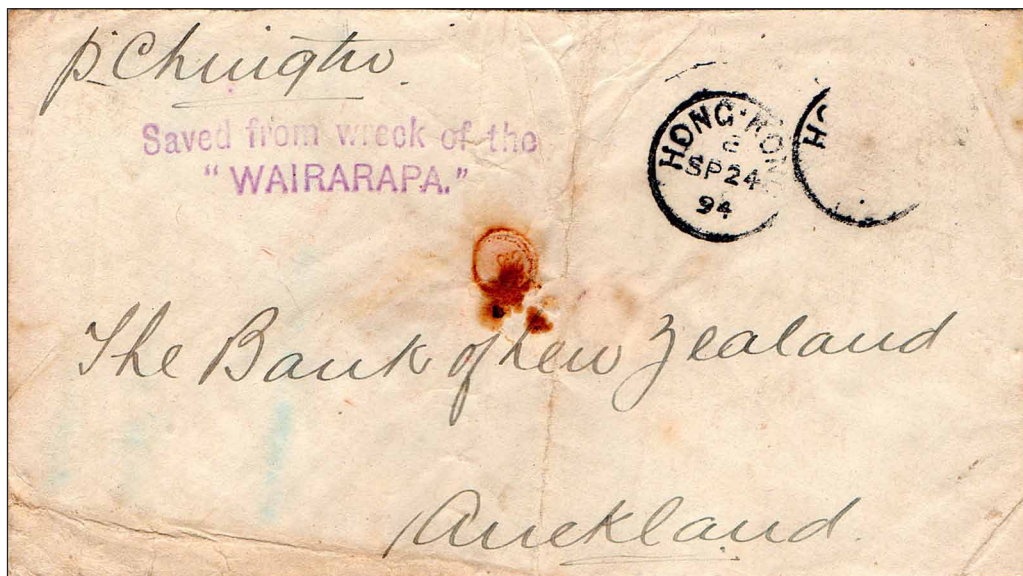 p Chingtu.
Saved from wreck of the
"WAIRARAPA."
HONG-KONG
C
SP 24
94
H
The Bank of New Zealand
Auckland.